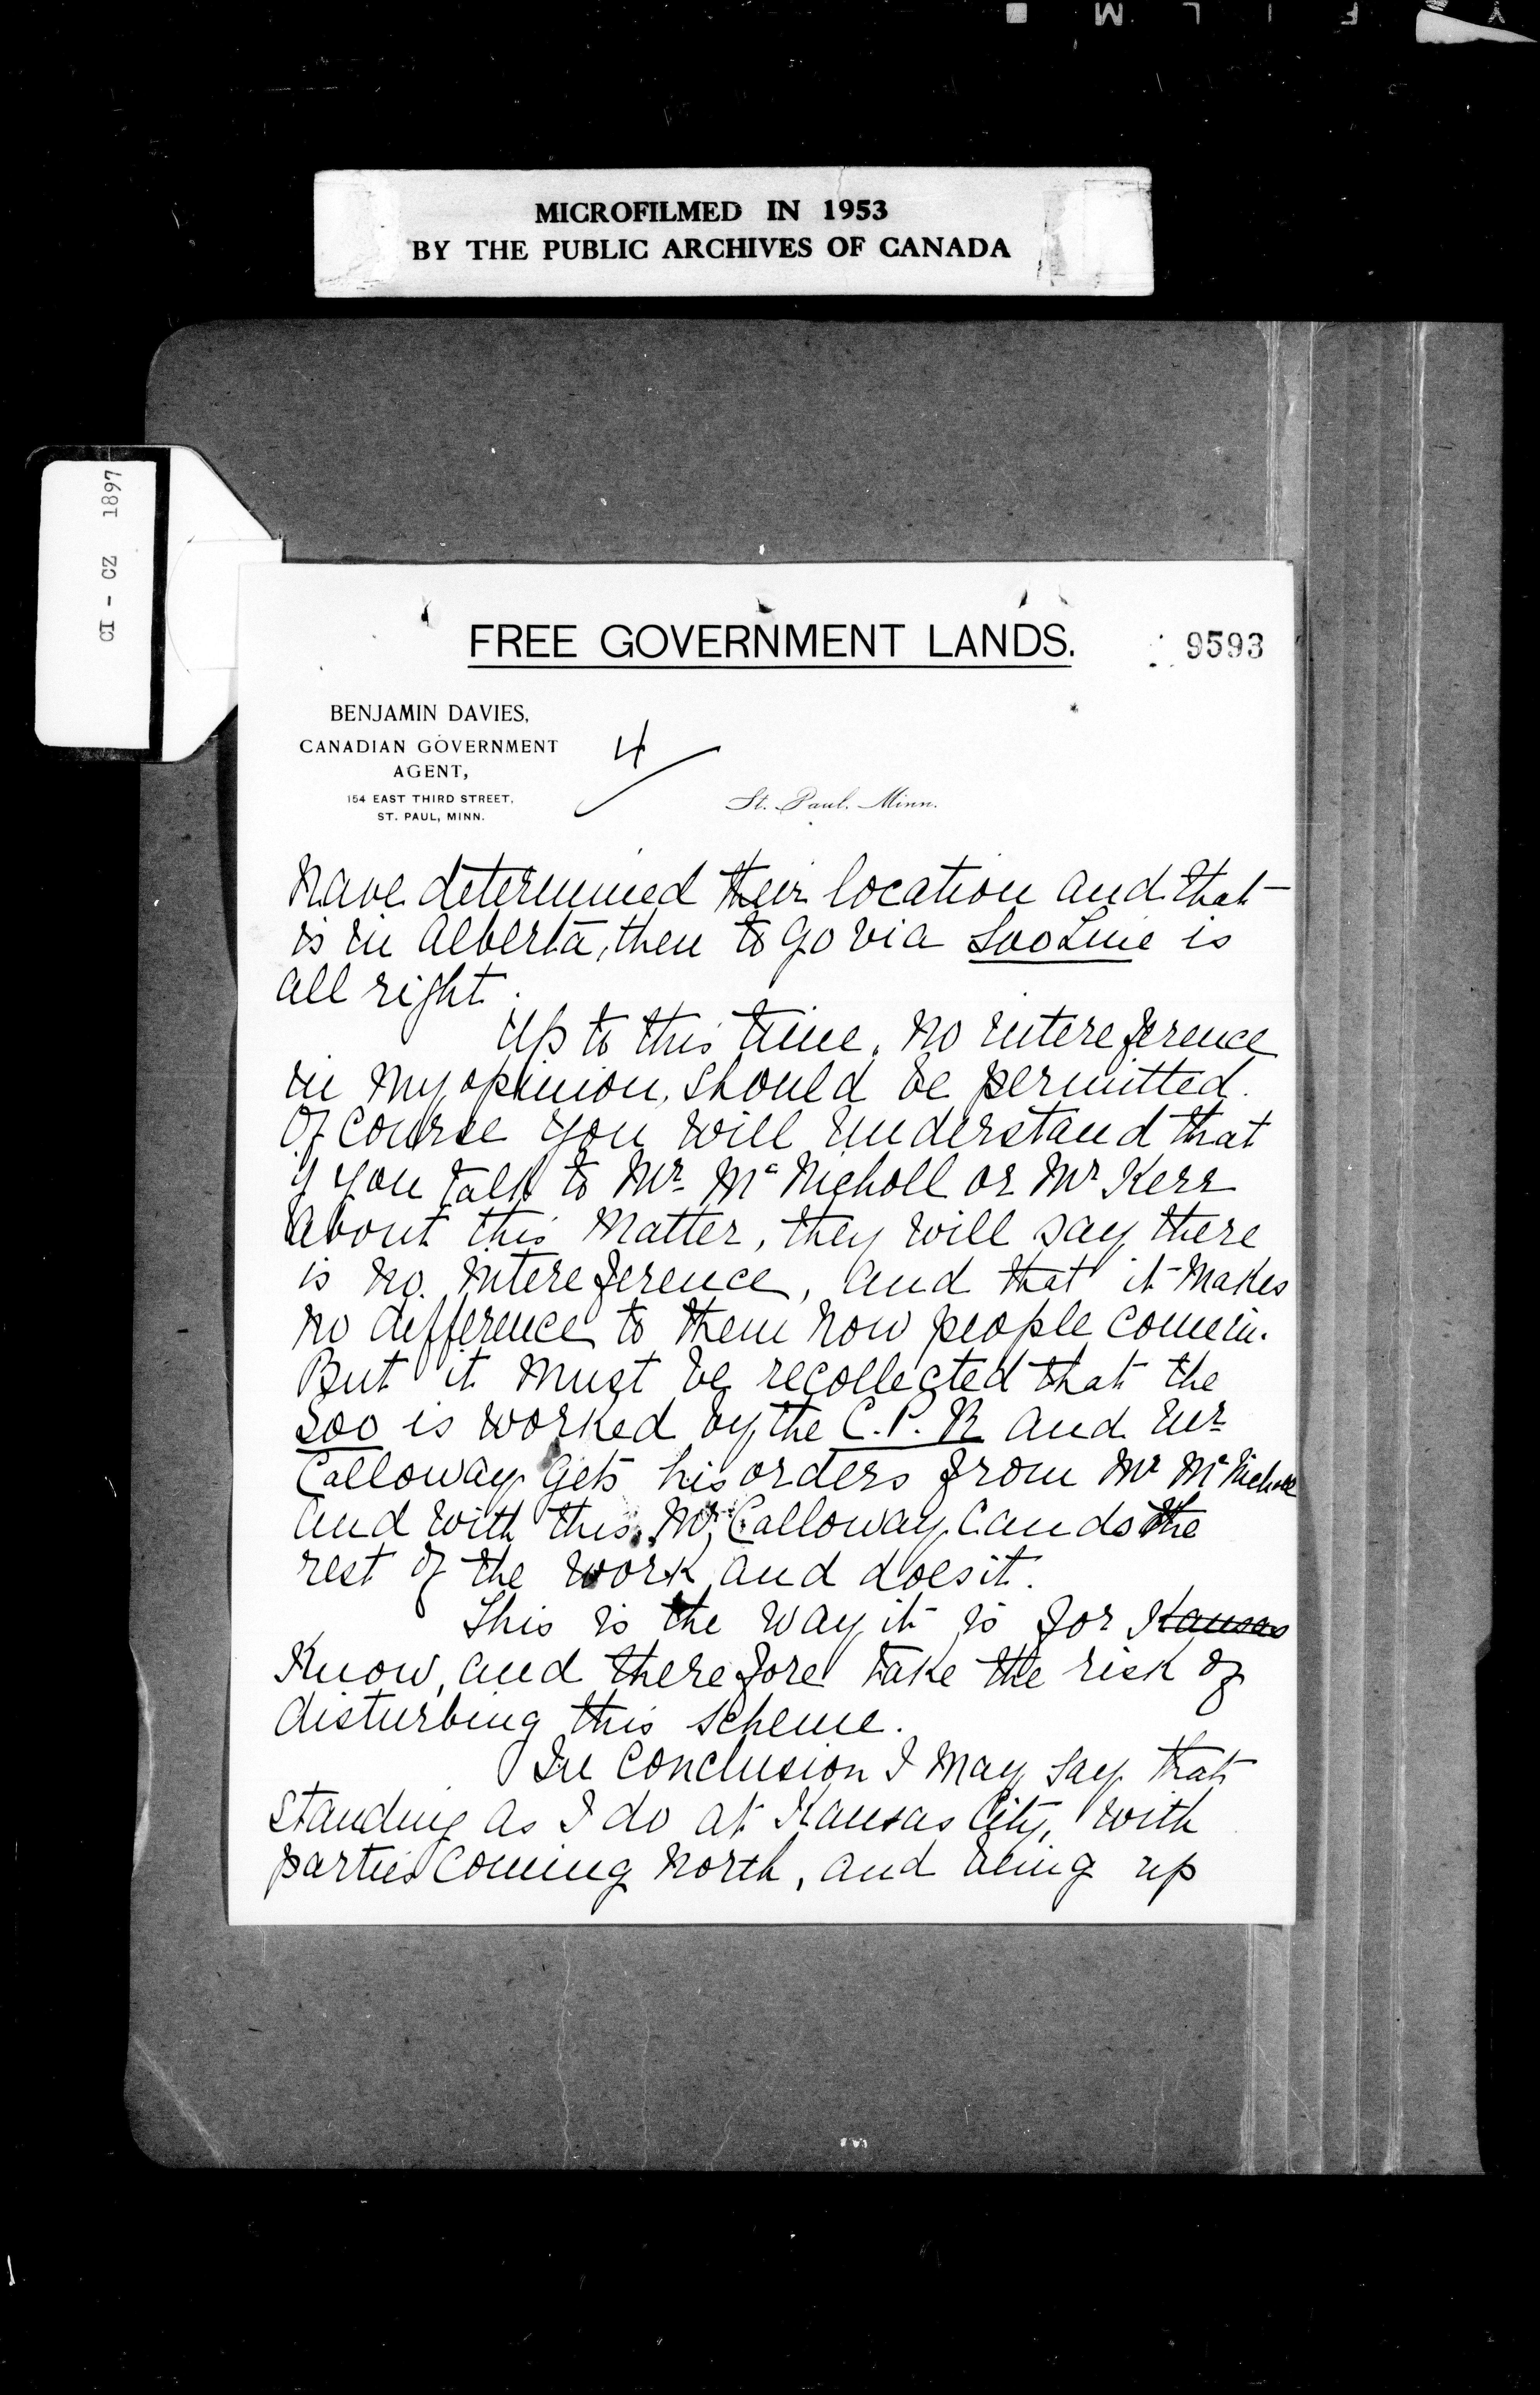 Y F I L M
MICROFILMED IN 1953
BY THE PUBLIC ARCHIVES OF CANADA
CI - CZ 1897
FREE GOVERNMENT LANDS.
9593
BENJAMIN DAVIES,
CANADIAN GOVERNMENT
AGENT,
154 EAST THIRD STREET,
ST. PAUL, MINN.
4
St. Paul. Minn.
have determined their location and that
is in Alberta, then to go via Soo Line is
all right.
Up to this time, no intereference
in my opinion, should be permitted.
Of course you will understand that
if you talk to Mr. McNicholl or Mr Kerr
about this matter, they will say there
is no intereference, and that it makes
no difference to them how people come in.
But it must be recollected that the
Soo is worked by the C.P.R and Mr
Calloway gets his orders from Mr McNicholl
and with this, Mr, Calloway can do the
rest of the work and does it.
This is the way it is for Kansas
Know, and therefore take the risk of
disturbing this scheme.
In conclusion I may say that
standing as I do at Kansas City, with
parties coming North, and being up